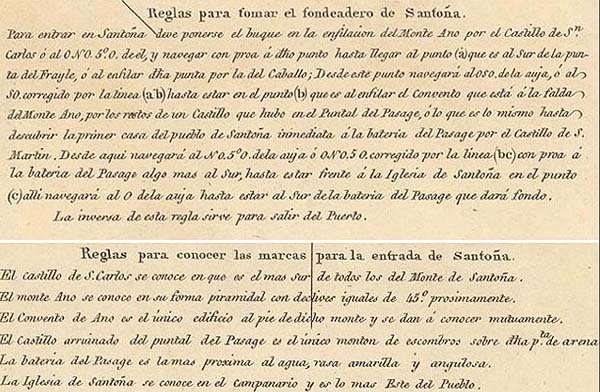 Reglas para tomar el fondeadero de Santoña.
Para entrar en Santoña deve ponerse el buque en la enfilacion del Monte Ano por el Castillo de Sn.
Carlos ó al ONO.5º.O. de él, y navegar con proa á dho punto hasta llegar al punto (a) que es al Sur de la pun-
ta del Frayle, ó al enfilar dha punta por la del Caballo; Desde este punto navegará al OSO. de la auja, ó al
SO. corregido por la línea (a b) hasta estar en el punto (b) que es al enfilar el Convento que está á la falda
del Monte Ano, por los restos de un Castillo que hubo en el Puntal del Pasage, ó lo que es lo mismo hasta
descubrir la primer casa del pueblo de Santoña inmediata á la bateria del Pasage por el Castillo de S.
Martin. Desde aqui navegará al NO.5º.O. de la auja ó ONO.5O. corregido por la línea (bc) con proa á
la bateria del Pasage algo mas al Sur, hasta estar frente á la Iglesia de Santoña en el punto
(c) alli navegará al O de la auja hasta estar al Sur de la bateria del Pasage que dará fondo.
La inversa de esta regla sirve para salir del Puerto.
Reglas para conocer las marcas para la entrada de Santoña.
El castillo de S. Carlos se conoce en que es el mas Sur de todos los del Monte de Santoña.
El monte Ano se conoce en su forma piramidal con declives iguales de 45º. prosimamente.
El Convento de Ano es el único edificio al pie de dicho monte y se dan á conocer mutuamente.
El Castillo arruinado del puntal del Pasage es el único monton de escombros sobre dha pta. de arena
La bateria del Pasage es la mas proxima al agua, rasa amarilla y angulosa.
La Iglesia de Santoña se conoce en el Campanario y es lo mas Este del Pueblo.